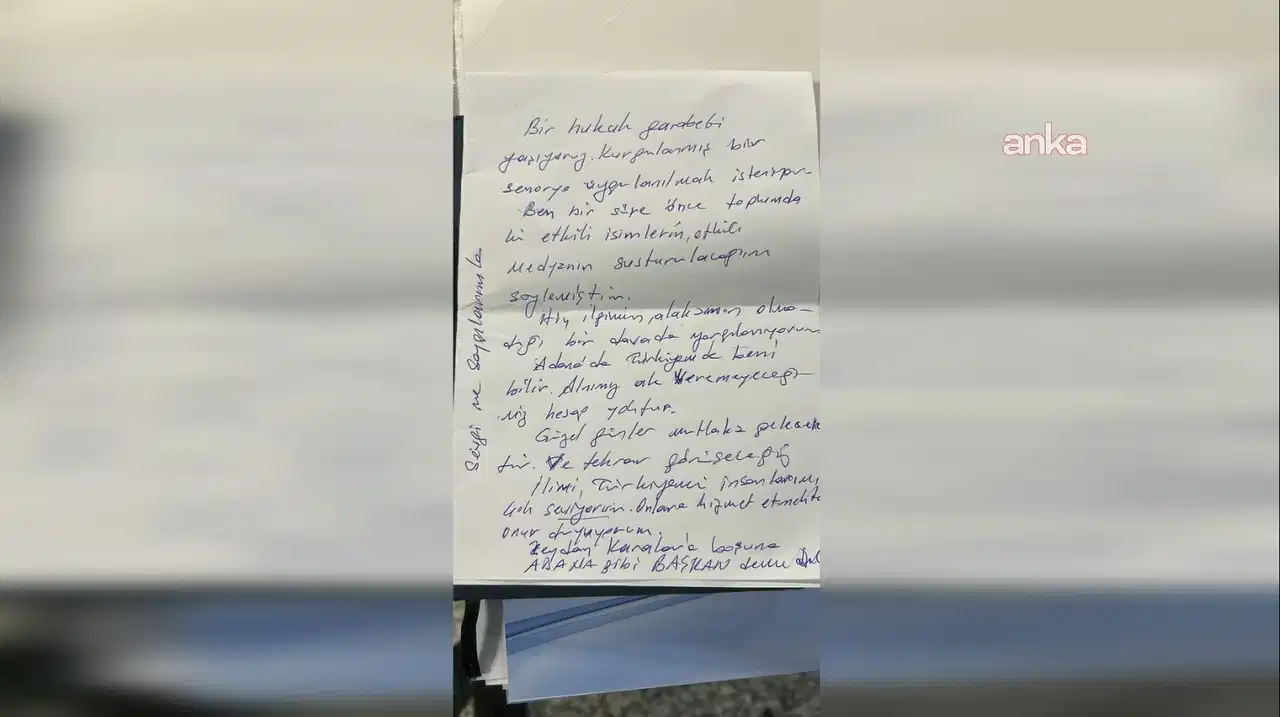 Bir hukuk garabeti
yaşıyoruz. Kurgulanmış bir
senaryo uygulanılmak isteniyor.
Ben bir süre önce toplumda
ki etkili isimlerin, etkili
medyanın susturulacağını
söylemiştim.
Hiç ilgimin, alakamın olma-
dığı bir davada yargılanıyorum
Adana'da Türkiyemde beni
bilir. Alnımız ak veremeyeceği-
miz hesap yoktur.
Güzel günler mutlaka gelecek
tir. Ve tekrar görüşeceğiz
İlimi, Türkiyemi insanlarımı,
çok seviyorum. Onlara hizmet etmekte
onur duyuyorum.
Zeydan Karalar'a boşuna
ADANA gibi BAŞKAN
Sevgi ve Saygılarımla
anka